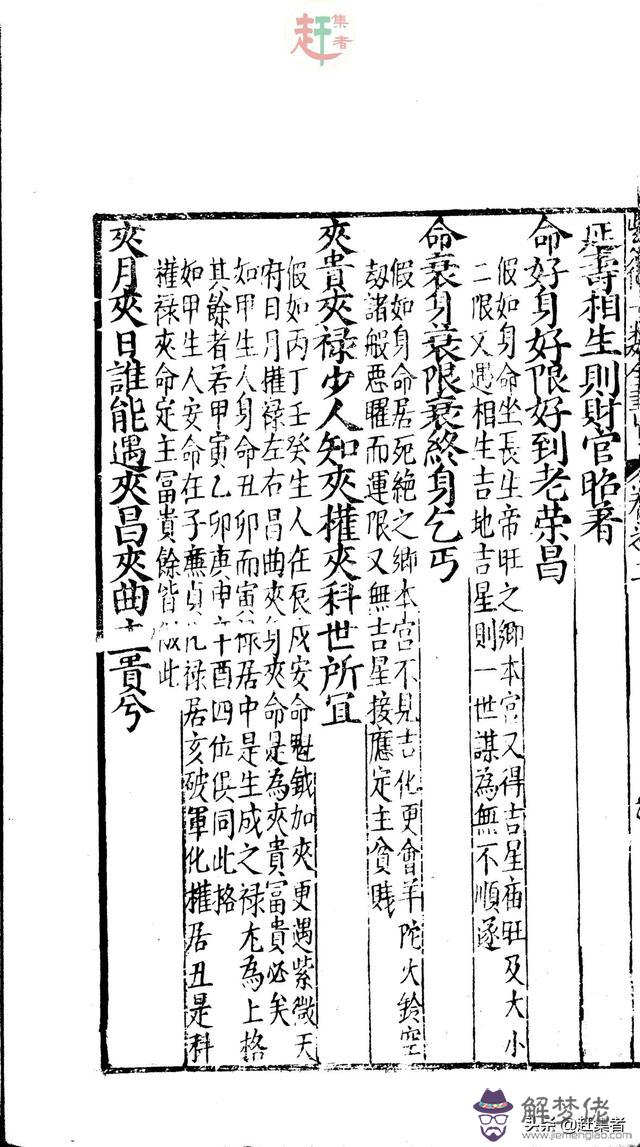 赶集者
延壽相生則財官昭著
命好身好限好到老荣昌
假如身命坐長生帝旺之鄉本宫又得吉星庙旺及大小
二限又遇相生吉地吉星則一世謀為無不順遂
命衰身衰限衰終身乞丐
假如身命居死絶之鄉本宫不見吉化更會羊陀火鈴空
刼諸般惡曜而運限又無吉星接應定主貧賎
夾貴夾禄少人知夾權夾科世所宜
假如丙丁壬癸生人在辰戌安命魁鉞加夾更遇紫微天
府日月權禄左右昌曲夾身夾命是為夾貴冨貴必矣
如甲生人身命丑卯而寅居中是生成之禄尤為上格
其餘者若甲寅乙卯庚申辛酉四位俱同此格
如甲生人安命在子廉貞化禄居亥破軍化權居丑是科
權禄夾命定主冨貴餘皆倣此
夾月夾日誰能遇夾昌夾曲主貴兮
解梦佬
www.jiemenglao.com
头条@赶集者